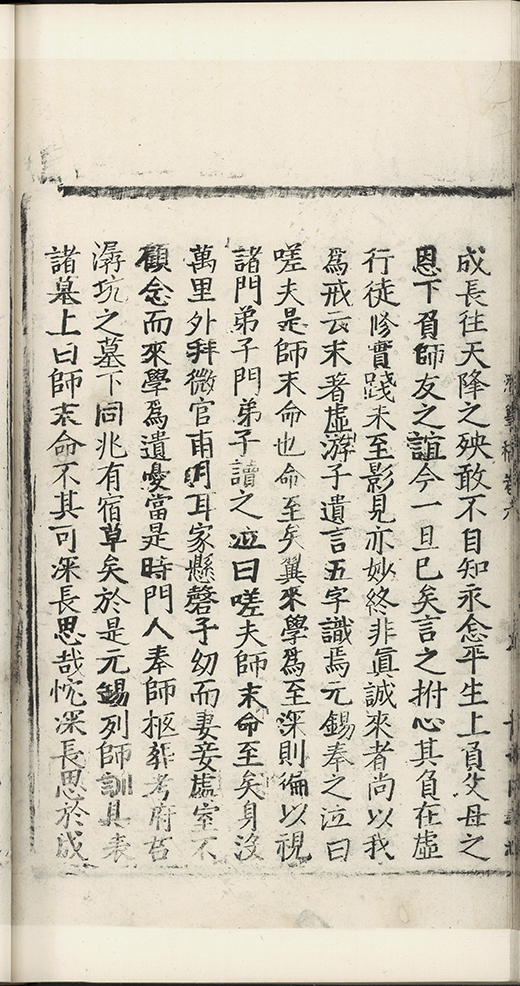 成長往天降之殃敢不自知永念平生上負父母之
恩下負師友之誼今一旦已矣言之拊心其負在虛
行徒修實踐未至影見亦妙終非眞誠來者尚以我
爲戒云末著虛游子遺言五字識焉元錫奉之泣曰
嗟夫是師末命也命至矣翼來學爲至深則徧以視
諸門弟子門弟子讀之泣曰嗟夫師末命至矣身沒
萬里外拜微官甫明耳家懸磬子幼而妻妾處室不
顧念而來學爲遺憂當是時門人奉師柩葬考府君
潯坑之墓下同兆有宿草矣於是元錫列師訓具表
諸墓上曰師末命不其可深長思哉忱深長思於成